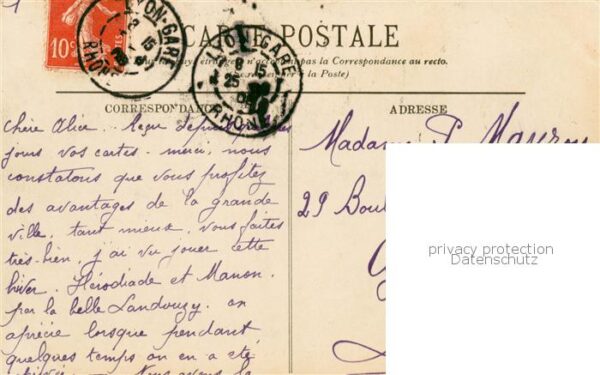 10c
LYON-GARE
RHONE
LYON-GARE
8 15
25
RHONE
CARTE POSTALE
pas la Correspondance au recto.
à la Poste)
CORRESPONDANCE
ADRESSE
Chère Alice. Reçu depuis
jours vos cartes. merci, nous
constatons que vous profitez
des avantages de la grande
ville, tant mieux, vous faites
très-bien, j'ai vu jouer cette
hiver. Hérodiade et Manon.
par la belle Landouzy. on
aprécie lorsque pendant
quelques temps on en a été
Nous avons la
Madame P. Mauron
29 Boul
privacy protection
Datenschutz